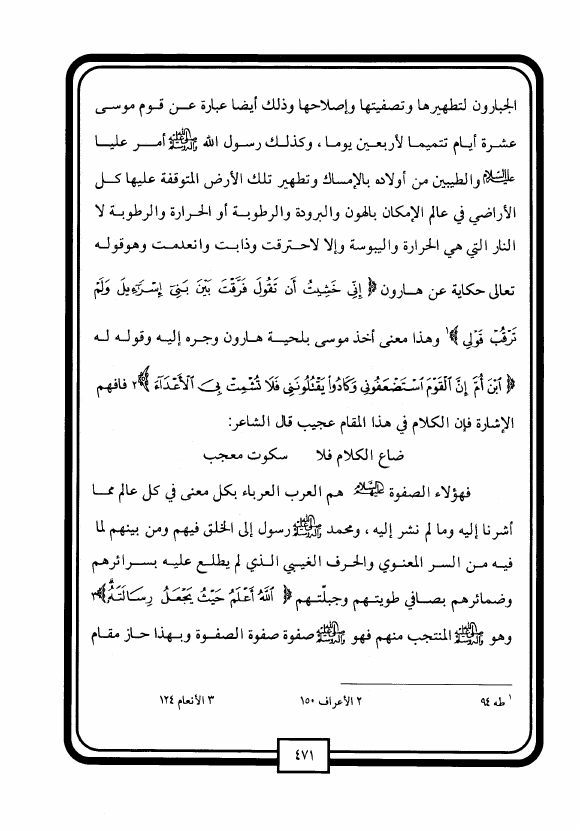 الجبارون لتطهيرها وتصفيتها وإصلاحها وذلك أيضا عبارة عـن قـوم موسـى
عشـرة أيـام تتميمـا لأربعـين يومـا ، وكـذلـك رسـول الله ﷺ أمـر عليـا
عليه السلام والطيبين من أولاده بالإمساك وتطهير تلك الأرض المتوقفة عليها كـل
الأراضي في عالم الإمكان بالهون والبرودة والرطوبة أو الحرارة والرطوبة لا
النار التي هي الحرارة واليبوسة وإلا لاحترقت وذابت وانعدمت وهوقولـه
تعالى حكاية عن هـارون ﴿ إِنِّى خَشِيتُ أَن تَقُولَ فَرَّقْتَ بَيْنَ بَنِىٓ إِسْرَٰٓءِيلَ وَلَمْ
تَرْقُبْ قَوْلِى ﴾١ وهذا معنى أخذ موسى بلحيـة هـارون وجره إليـه وقولـه لـه
﴿ ٱبْنَ أُمَّ إِنَّ ٱلْقَوْمَ ٱسْتَضْعَفُونِى وَكَادُوا۟ يَقْتُلُونَنِى فَلَا تُشْمِتْ بِىَ ٱلْأَعْدَآءَ ﴾٢ فافهم
الإشارة فإن الكلام في هذا المقام عجيب قال الشاعر:
ضاع الكلام فلا سكوت معجب
فهؤلاء الصفوة عليهم السلام هم العرب العرباء بكل معنى في كل عالم ممـا
أشرنا إليه وما لم نشر إليه ، ومحمد ﷺ رسول إلى الخلق فيهم ومن بينهم لما
فيه مـن السر المعنـوي والحرف الغيبي الـذي لم يطلـع عليـه بسـرائرهم
وضمائرهم بصـافي طويتـهم وجبلّتـهم ﴿ ٱللَّهُ أَعْلَمُ حَيْثُ يَجْعَلُ رِسَالَتَهُۥ ﴾٣
وهو ﷺ المنتجب منهم فهو ﷺ صفوة صفوة الصفـوة وبـهذا حاز مقـام
١ طه ٩٤ ٢ الأعراف ١٥٠ ٣ الأنعام ١٢٤
٤٧١